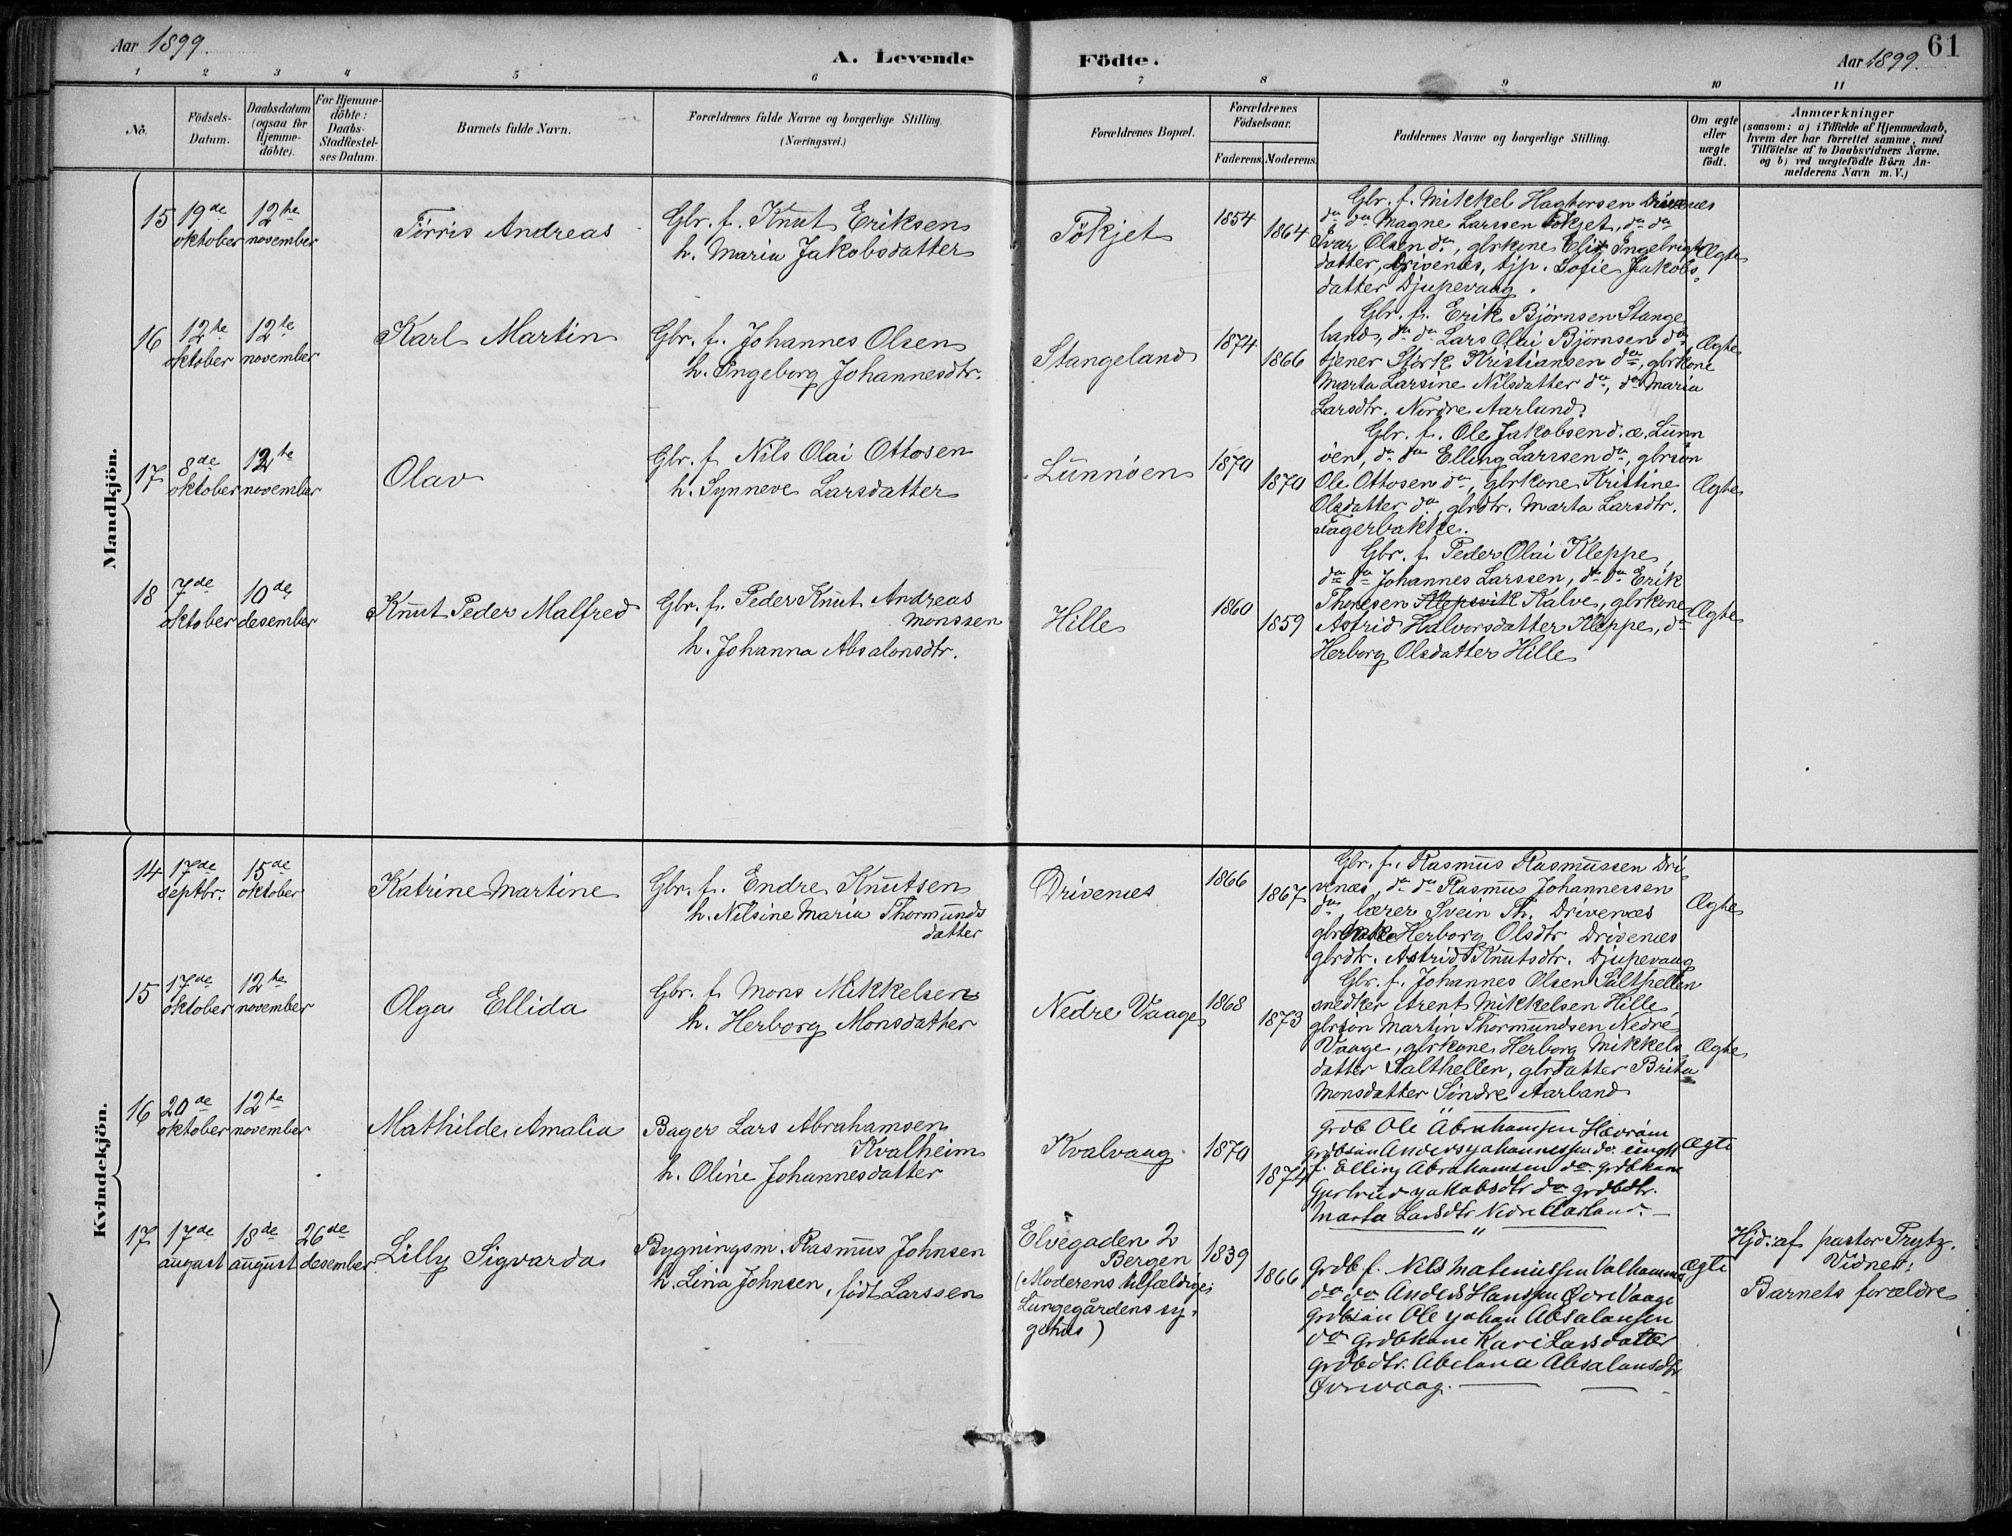 Aar 1899.
A. Levende Födte.
Aar 1899.
61
1 2 3 4 5 6 7 8 9 10 11
No.
Födsels-Datum.
Daabsdatum (ogsaa for Hjemme-döbte).
For Hjemme-döbte: Daabs-Stadfæstel-ses Datum.
Barnets fulde Navn.
Forældrenes fulde Navne og borgerlige Stilling. (Næringsvei.)
Forældrenes Bopæl.
Forældrenes Födselsaar.
Faderens. Moderens.
Faddernes Navne og borgerlige Stilling.
Om ægte eller uægte födt.
Anmærkninger
(saasom: a) i Tilfælde af Hjemmedaab,
hvem der har forrettet samme, med
Tilföielse af to Daabsvidners Navne.
og b) ved uægtefödte Börn An-
melderens Navn m. V.)
Mandkjön.
15
19de oktober
12te november
Törris Andreas
Gbr. f. Knut Eriksen
h. Maria Jakobsdatter
Tökjet
1854
1864
Gbr. f. Mikkel Hagtorsen Drivenes
do do Magne Larssen Tökjet, do do
Ivar Olsen do, gbrkone Elis Ingebrigt
datter, Drivenes, tjp. Sofie Jakobs-
datter Djupevaag.
Ægte
16
12te oktober
12te november
Karl Martin
Gbr. f. Johannes Olsen
h. Ingeborg Johannesdtr.
Stangeland
1874
1866
Gbr. f. Erik Björnsen Stange
land, do do Lars Olai Björnsen do,
tjener Störk Kristiansen do, gbrkone
Marta Larsine Nilsdatter do, do Maria
Larsdtr. Nordre Aarland.
Ægte
17
8de oktober
12te november
Olav
Gbr. f. Nils Olai Ottosen
h. Synneve Larsdatter
Lunnöen
1870
1870
Gbr. f. Ole Jakobsen d. æ. Lunn
öen, do do Elling Larssen do, gbrsön
Ole Ottosen do, gbrkone Kristine
Olsdatter do, gbrdtr. Marta Larsdtr.
Fagerbakke.
Ægte
18
7de oktober
10de desember
Knut Peder Malfred
Gbr. f. Peder Knut Andreas
Monssen
h. Johanna Absalonsdtr.
Hille
1860
1859
Gbr. f. Peder Olai Kleppe,
do do Johannes Larssen, do do Erik
Thoresen Klepsvik Kalve, gbrkone
Astrid Halvorsdatter Kleppe, do
Herborg Olsdatter Hille
Ægte
Kvindekjön.
14
17de septbr.
15de oktober
Katrine Martine
Gbr. f. Endre Knutsen
h. Nilsine Maria Thormunds
datter
Drivenæs
1866
1867
Gbr. f. Rasmus Rasmussen Dri-
venæs, do do Rasmus Johannessen
do lærer Svein Th. Drivenæs
gbrkone Herborg Olsdtr Drivenæs
gbrdtr. Astrid Knutsdtr. Djupevaag
Ægte
15
17de oktober
12te november
Olga Ellida
Gbr. f. Mons Mikkelsen
h. Herborg Monsdatter
Nedre Vaage
1868
1873
Gbr. f. Johannes Olsen Salthellen
snedker Arent Mikkelsen Hille,
gbrsön Martin Thormundsen Nedre
Vaage, gbrkone Herborg Mikkels
datter Salthellen, gbrdatter Brita
Monsdatter Söndre Aarland
Ægte
16
20de oktober
12te november
Mathilde Amalia
Bager Lars Abrahamsen
Kvalheim
h. Oline Johannesdatter
Kvalvaag
1870
1874
Grdb Ole Abrahamsen Hevröin
grdbsön Anders Johannessen do. ungk
f. Elling Abrahamsen do. grdbkone
Gjertrud Jakobsdtr do grdbdtr.
Marta Larsdtr Nedre Aarland.
Ægte
17
17de august
18de august
26de desember
Lilly Sigvarda
Bygningsm. Rasmus Johnsen
h. Lina Johnsen, födt Larssen
Elvegaden 2
Bergen
(Moderens tilfældige:
Lungegårdens sy-
gehus)
1839
1866
Grdb f. Nils Matiniussen Valhammer
do do Anders Hanssen Øvre Vaage
grdbsön Ole Johan Absalonsen
do grdbkone Kari Larsdatter
grdbdtr. Abelona Absalonsdtr
Øvrevaag.
Ægte
Hjd. af pastor Frytz.
Vidner:
Barnets forældre